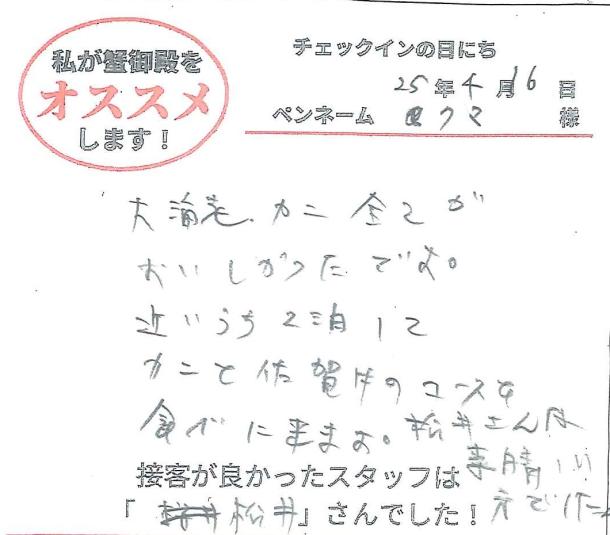 私が蟹御殿を
オススメ
します！
チェックインの日にち
25年4月16日
ペンネーム クマ 様
大海老、カニ全てが
おいしかったですよ。
近いうち2泊して
カニと佐賀牛のコースを
食べに来ます。松井さんは
素晴しい
方でした
接客が良かったスタッフは
「松井」さんでした！